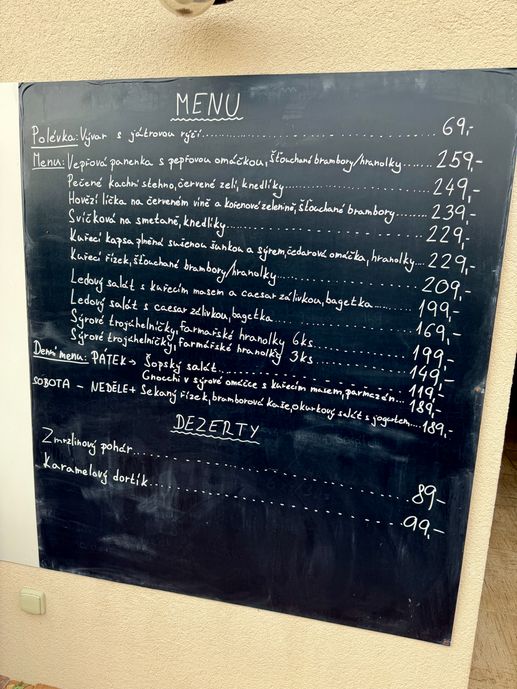 MENU
Polévka: Vývar s játrovou rýží 69,-
Menu: Vepřová panenka s pepřovou omáčkou, šťouchané brambory/hranolky 259,-
Pečené kachní stehno, červené zelí, knedlíky 249,-
Hovězí líčka na červeném víně a kořenové zelenině, šťouchané brambory 239,-
Svíčková na smetaně, knedlíky 229,-
Kuřecí kapsa plněná sušenou šunkou a sýrem, čedarová omáčka, hranolky 229,-
Kuřecí řízek, šťouchané brambory/hranolky 209,-
Ledový salát s kuřecím masem a caesar zálivkou, bagetka 199,-
Ledový salát s caesar zálivkou, bagetka 169,-
Sýrové trojúhelníčky, farmářské hranolky 6ks 199,-
Sýrové trojúhelníčky, farmářské hranolky 3ks 149,-
Denní menu: PÁTEK → Šopský salát 119,-
Gnocchi v sýrové omáčce s kuřecím masem, parmazán 189,-
SOBOTA - NEDĚLE → Sekaný řízek, bramborová kaše, okurkový salát s jogurtem 189,-
DEZERTY
Zmrzlinový pohár 89,-
Karamelový dortík 99,-